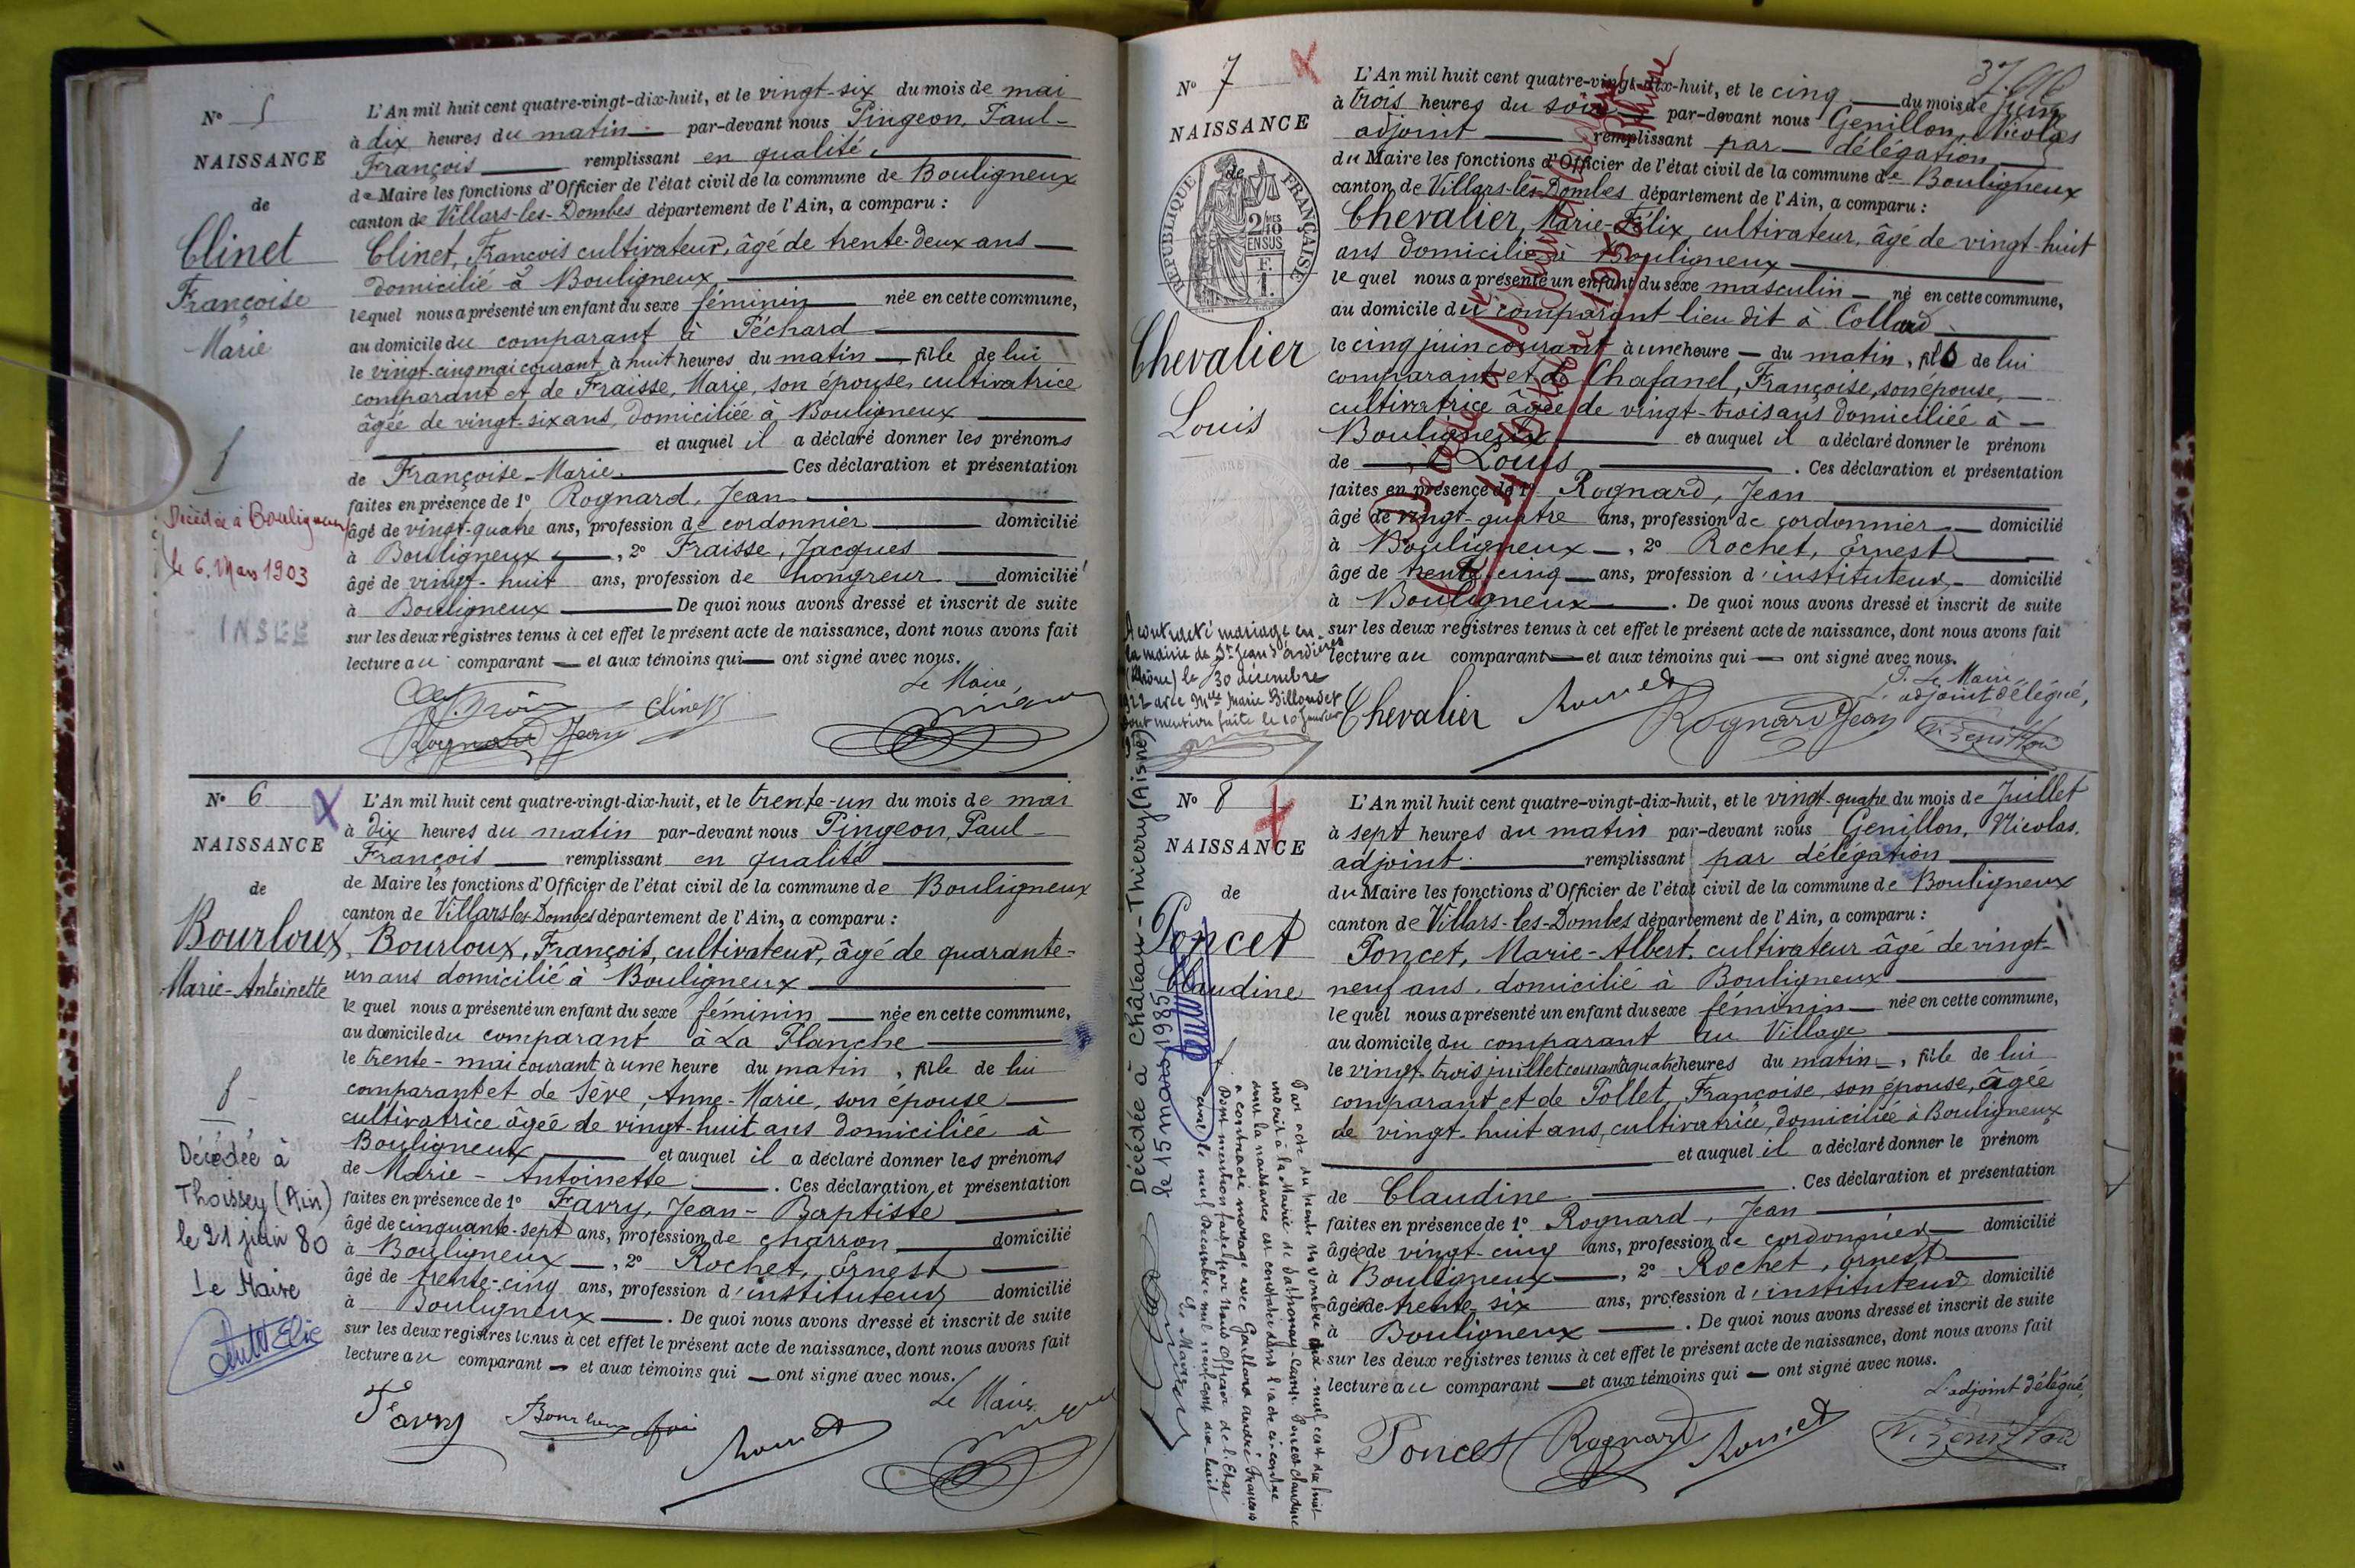 N° 5
NAISSANCE
de
Clinet
Françoise
Marie
Décédée à Bouligneux
le 6. Mars 1903
INSEE
L'An mil huit cent quatre-vingt-dix-huit, et le vingt-six du mois de mai
à dix heures du matin par-devant nous Pingeon, Paul-
François remplissant en qualité
de Maire les fonctions d'Officier de l'état civil de la commune de Bouligneux
canton de Villars-les-Dombes département de l'Ain, a comparu :
Clinet, François cultivateur, âgé de trente-deux ans
domicilié à Bouligneux
lequel nous a présenté un enfant du sexe féminin née en cette commune,
au domicile du comparant à Péchard
le vingt-cinq mai courant à huit heures du matin fille de lui
comparant et de Fraisse, Marie, son épouse, cultivatrice
âgée de vingt-six ans, domiciliée à Bouligneux
et auquel il a déclaré donner les prénoms
de Françoise-Marie. Ces déclaration et présentation
faites en présence de 1° Rognard, Jean
âgé de vingt-quatre ans, profession de cordonnier domicilié
à Bouligneux, 2° Fraisse, Jacques
âgé de vingt-huit ans, profession de hongreur domicilié
à Bouligneux De quoi nous avons dressé et inscrit de suite
sur les deux registres tenus à cet effet le présent acte de naissance, dont nous avons fait
lecture au comparant et aux témoins qui ont signé avec nous.
Le Maire,
Clinet
Rognard Jean
N° 6
NAISSANCE
de
Bourloux
Marie-Antoinette
Décédée à
Thoissey (Ain)
le 21 juin 80
Le Maire
L'An mil huit cent quatre-vingt-dix-huit, et le trente-un du mois de mai
à dix heures du matin par-devant nous Pingeon, Paul-
François remplissant en qualité
de Maire les fonctions d'Officier de l'état civil de la commune de Bouligneux
canton de Villars les Dombes département de l'Ain, a comparu :
Bourloux, François, cultivateur, âgé de quarante-
un ans domicilié à Bouligneux
le quel nous a présenté un enfant du sexe féminin née en cette commune,
au domicile du comparant à La Planche
le trente-mai courant à une heure du matin, fille de lui
comparant et de Sève, Anne-Marie, son épouse
cultivatrice âgée de vingt-huit ans domiciliée à
Bouligneux et auquel il a déclaré donner les prénoms
de Marie-Antoinette. Ces déclaration et présentation
faites en présence de 1° Favry, Jean-Baptiste
âgé de cinquante-sept ans, profession de charron domicilié
à Bouligneux, 2° Rochet, Ernest
âgé de trente-cinq ans, profession d'instituteur domicilié
à Bouligneux. De quoi nous avons dressé et inscrit de suite
sur les deux registres tenus à cet effet le présent acte de naissance, dont nous avons fait
lecture au comparant et aux témoins qui ont signé avec nous.
Le Maire
Favry Bourloux foi Rochet
N° 7
NAISSANCE
de
RÉPUBLIQUE FRANÇAISE
Chevalier
Louis
A contracté mariage en
la mairie de St Jean d'Ardières
(Rhône) le 30 décembre
1922 avec Melle Marie Billoudet
Dont mention faite le 10 janvier
L'An mil huit cent quatre-vingt-dix-huit, et le cinq du mois de Juin
à trois heures du soir par-devant nous Genillon, Nicolas
adjoint remplissant par délégation
du Maire les fonctions d'Officier de l'état civil de la commune de Bouligneux
canton de Villars-les-Dombes département de l'Ain, a comparu :
Chevalier, Marie-Félix, cultivateur, âgé de vingt-huit
ans domicilié à Bouligneux
le quel nous a présenté un enfant du sexe masculin né en cette commune,
au domicile du comparant lieu dit à Collard
le cinq juin courant à une heure du matin, fils de lui
comparant et de Chafanel, Françoise, son épouse,
cultivatrice âgée de vingt-trois ans domiciliée à
Bouligneux et auquel il a déclaré donner le prénom
de Louis. Ces déclaration et présentation
faites en présence de 1° Rognard, Jean
âgé de vingt-quatre ans, profession de cordonnier domicilié
à Bouligneux, 2° Rochet, Ernest
âgé de trente-cinq ans, profession d'instituteur domicilié
à Bouligneux. De quoi nous avons dressé et inscrit de suite
sur les deux registres tenus à cet effet le présent acte de naissance, dont nous avons fait
lecture au comparant et aux témoins qui ont signé avec nous.
P. Le Maire
L'adjoint délégué,
Chevalier Rochet Rognard Jean N. Genillon
N° 8
NAISSANCE
de
Poncet
Claudine
Décédée à Château-Thierry (Aisne)
le 15 mars 1985
Par acte du trente novembre dix-neuf cent dix huit
inscrit à la Mairie de Sathonay-Camp. Poncet Claudine
dont la naissance est constatée dans l'acte ci-contre
a contracté mariage avec Gaillard André François
Dont mention faite par nous officier de l'Etat
civil le neuf Décembre mil neuf cent dix-huit
Le Maire
L'An mil huit cent quatre-vingt-dix-huit, et le vingt-quatre du mois de Juillet
à sept heures du matin par-devant nous Genillon, Nicolas,
adjoint remplissant par délégation
du Maire les fonctions d'Officier de l'état civil de la commune de Bouligneux
canton de Villars-les-Dombes département de l'Ain, a comparu :
Poncet, Marie-Albert, cultivateur âgé de vingt-
neuf ans, domicilié à Bouligneux
le quel nous a présenté un enfant du sexe féminin née en cette commune,
au domicile du comparant au Village
le vingt-trois juillet courant à quatre heures du matin, fille de lui
comparant et de Pollet, Françoise, son épouse, âgée
de vingt-huit ans, cultivatrice, domiciliée à Bouligneux
et auquel il a déclaré donner le prénom
de Claudine. Ces déclaration et présentation
faites en présence de 1° Rognard, Jean
âgé de vingt-cinq ans, profession de cordonnier domicilié
à Bouligneux, 2° Rochet, Ernest
âgé de trente-six ans, profession d'instituteur domicilié
à Bouligneux. De quoi nous avons dressé et inscrit de suite
sur les deux registres tenus à cet effet le présent acte de naissance, dont nous avons fait
lecture au comparant et aux témoins qui ont signé avec nous.
L'adjoint délégué,
Poncet Rognard Rochet N. Genillon